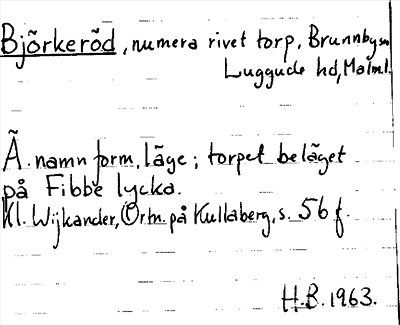 Björkeröd, numera rivet torp, Brunnby sn
Luggude hd, Malml.
Ä. namnform, läge; torpet beläget
på Fibbe lycka.
Kl. Wijkander, Ortn. på Kullaberg, s. 56 f.
H.B. 1963.